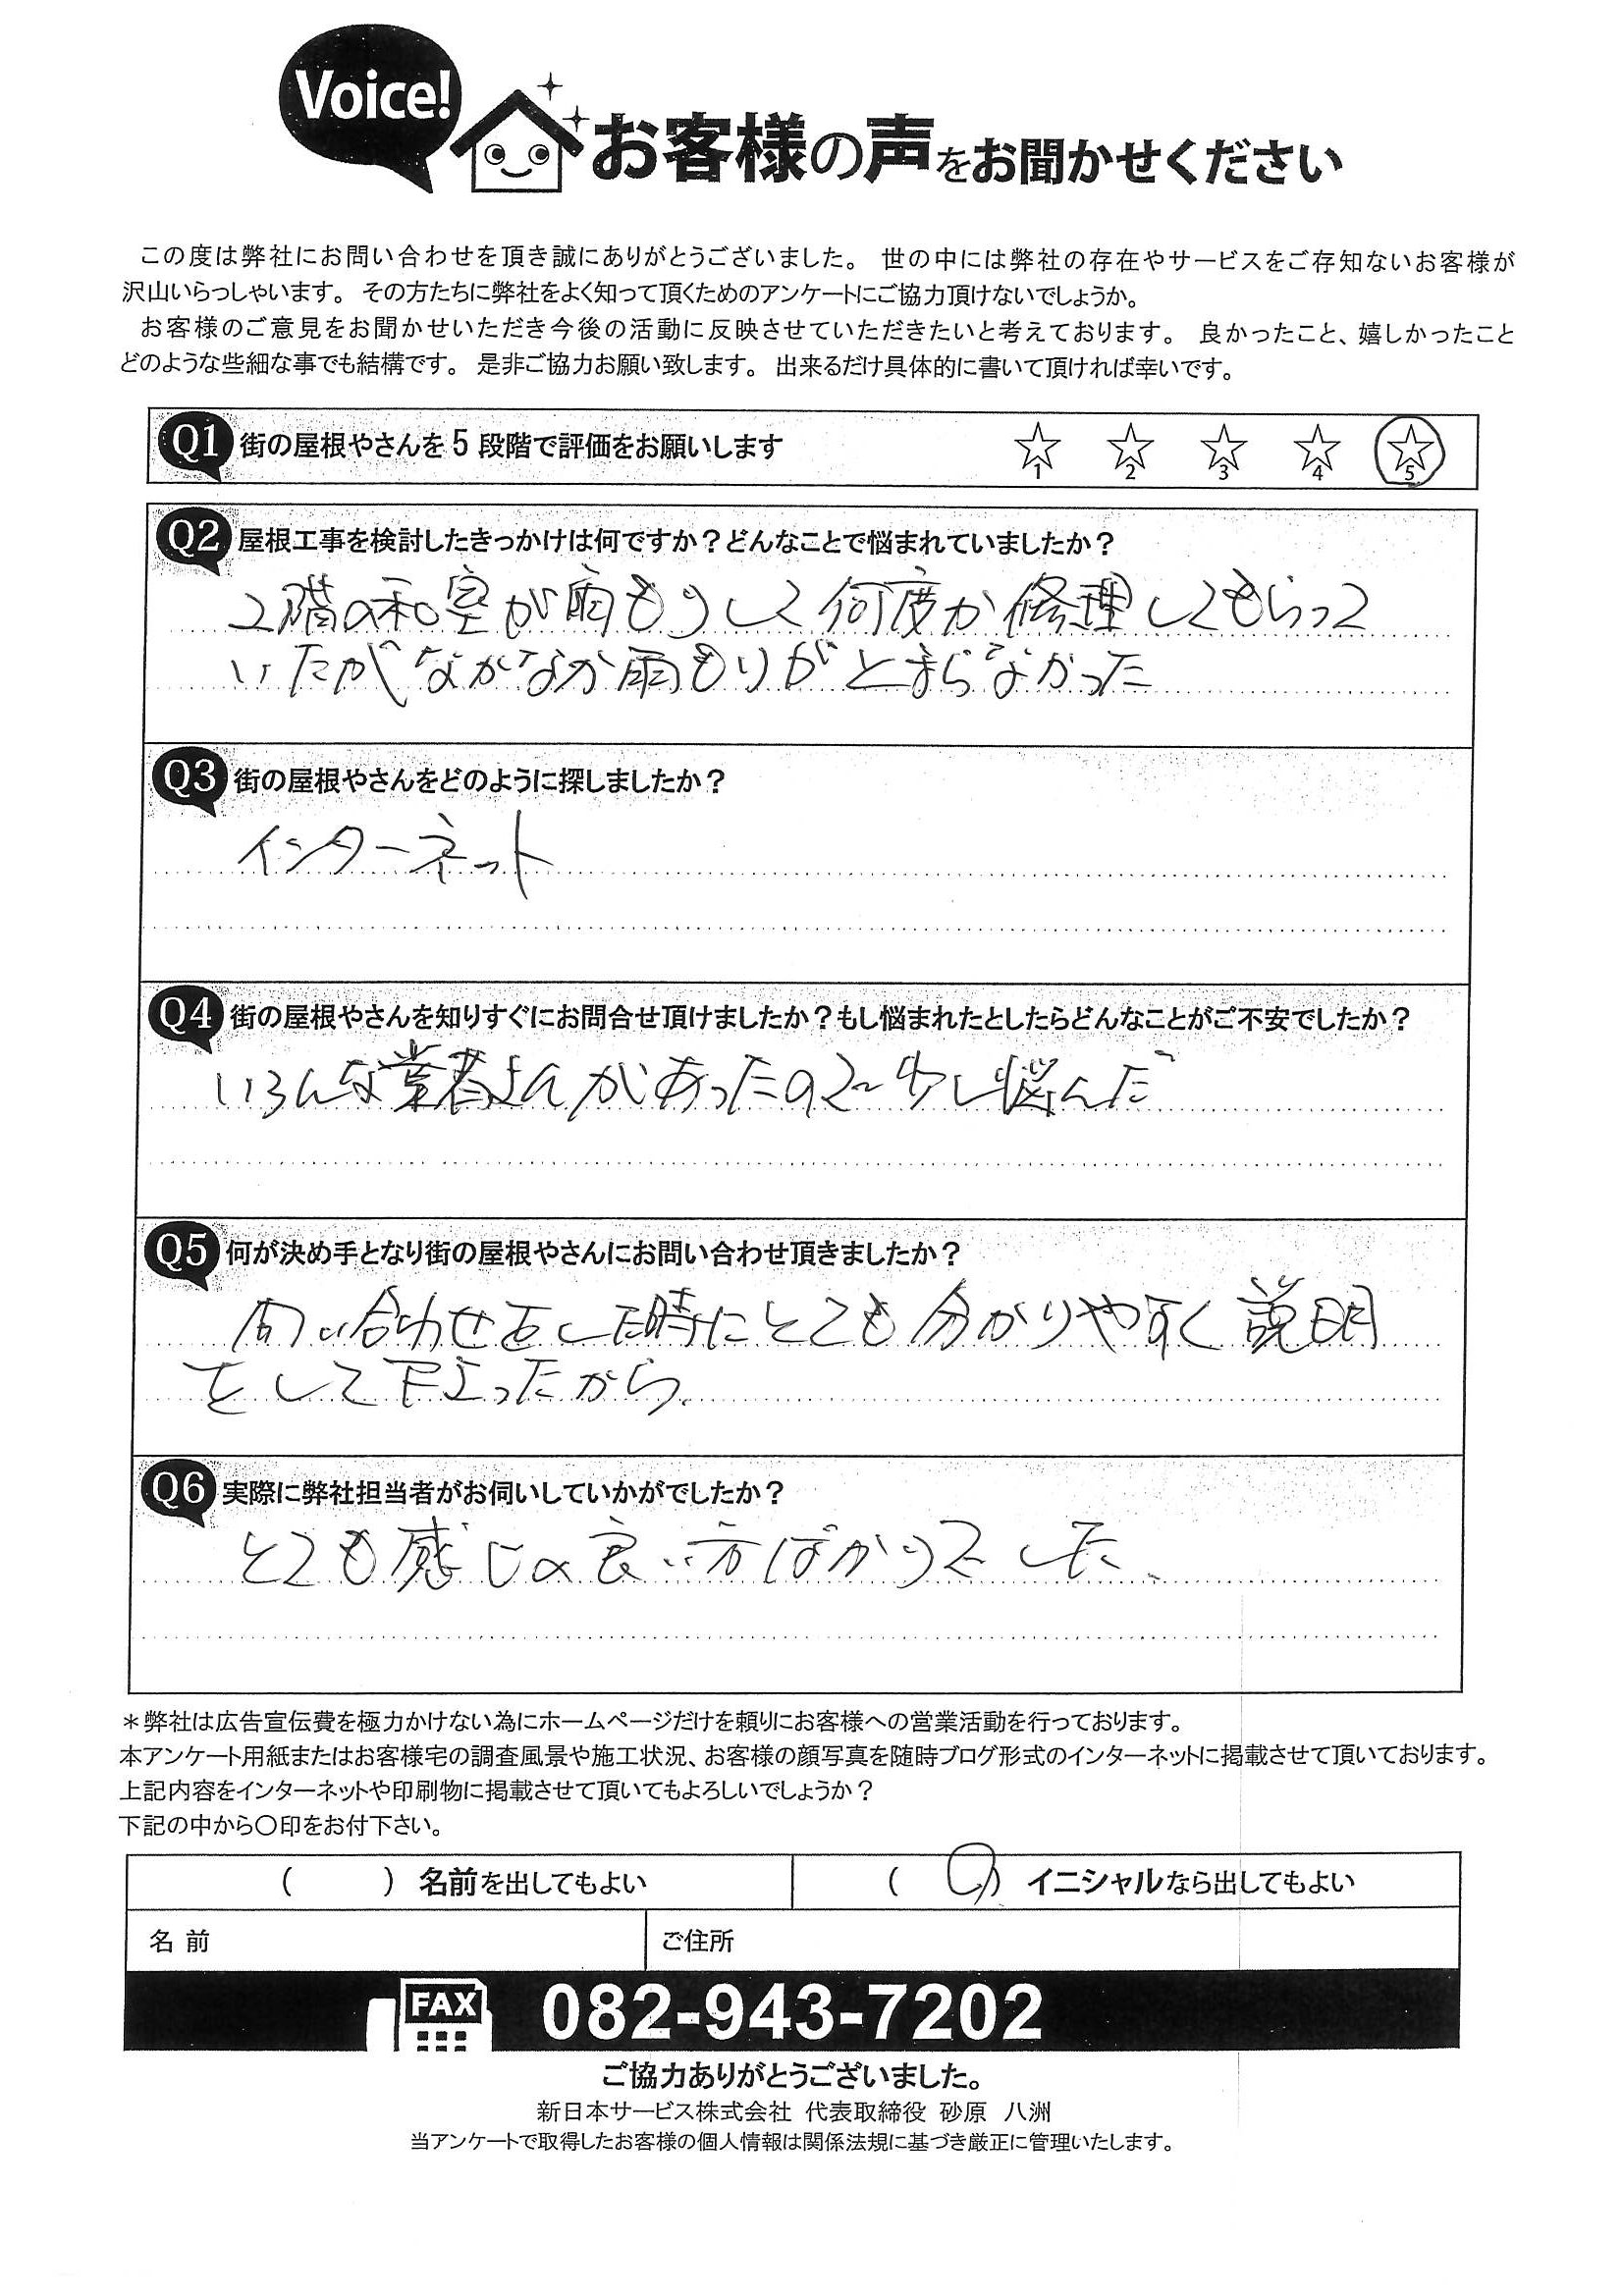 Voice!
お客様の声をお聞かせください
この度は弊社にお問い合わせを頂き誠にありがとうございました。 世の中には弊社の存在やサービスをご存知ないお客様が
沢山いらっしゃいます。 その方たちに弊社をよく知って頂くためのアンケートにご協力頂けないでしょうか。
お客様のご意見をお聞かせいただき今後の活動に反映させていただきたいと考えております。 良かったこと、嬉しかったこと
どのような些細な事でも結構です。 是非ご協力お願い致します。 出来るだけ具体的に書いて頂ければ幸いです。
Q1 街の屋根やさんを5段階で評価をお願いします ☆1 ☆2 ☆3 ☆4 ☆5
Q2 屋根工事を検討したきっかけは何ですか？どんなことで悩まれていましたか？
2階の和室が雨もりして何度か修理してもらって
いたがなかなか雨もりがとまらなかった
Q3 街の屋根やさんをどのように探しましたか？
インターネット
Q4 街の屋根やさんを知りすぐにお問合せ頂けましたか？もし悩まれたとしたらどんなことがご不安でしたか？
いろんな業者さんがあったので少し悩んだ
Q5 何が決め手となり街の屋根やさんにお問い合わせ頂きましたか？
問い合わせをした時にとても分かりやすく説明
をして下さったから。
Q6 実際に弊社担当者がお伺いしていかがでしたか？
とても感じの良い方ばかりでした。
＊弊社は広告宣伝費を極力かけない為にホームページだけを頼りにお客様への営業活動を行っております。
本アンケート用紙またはお客様宅の調査風景や施工状況、お客様の顔写真を随時ブログ形式のインターネットに掲載させて頂いております。
上記内容をインターネットや印刷物に掲載させて頂いてもよろしいでしょうか？
下記の中から〇印をお付下さい。
（　　）名前を出してもよい （ 〇 ）イニシャルなら出してもよい
名 前 ご住所
FAX 082-943-7202
ご協力ありがとうございました。
新日本サービス株式会社 代表取締役 砂原 八洲
当アンケートで取得したお客様の個人情報は関係法規に基づき厳正に管理いたします。